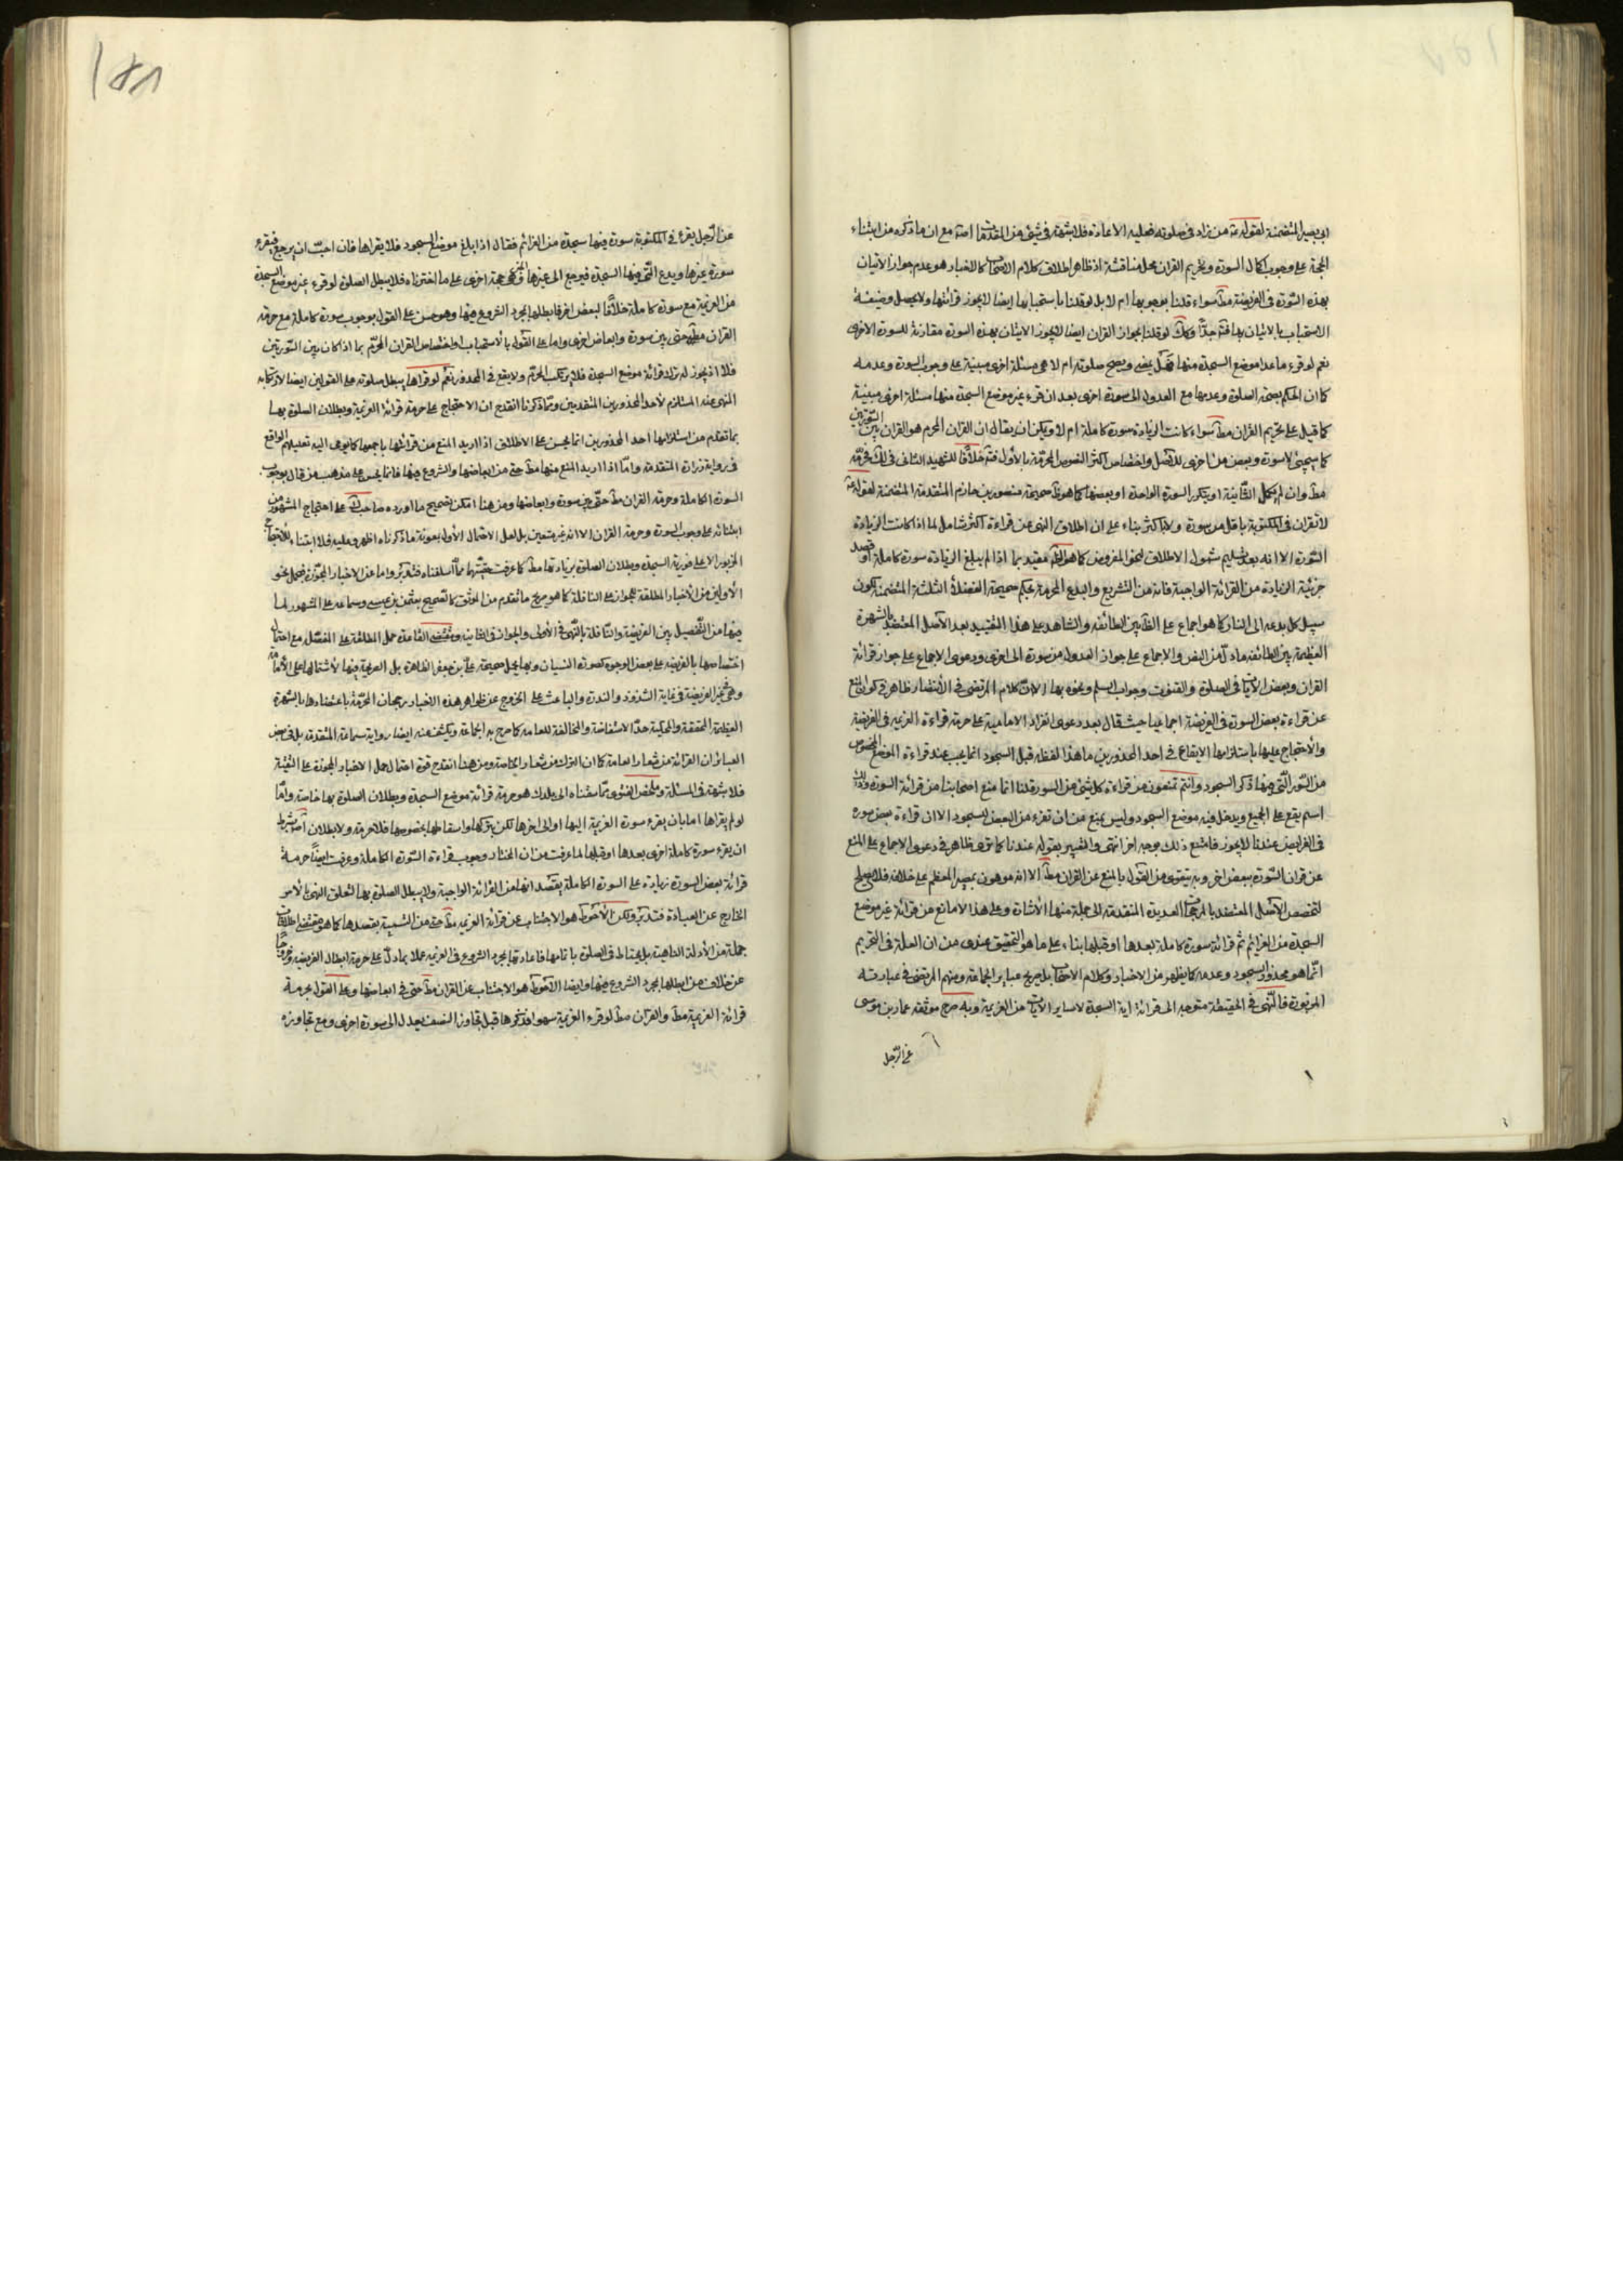 ابو بصير المتضمنة لقوله من زاد في صلوته فعليه الاعادة فلا شبهة في شئ من المقدمات اصلا مع ان ما ذكره من ابتناء
الحجة على وجوب اكمال السورة وتحريم القران محل مناقشة اذ ظاهر اطلاق كلام الاصحاب كالاخبار هو عدم جواز الاتيان
بهذه السورة في الفريضة مط سواء قلنا بوجوبها ام لا بل لو قلنا باستحبابها ايضا لا يجوز قرائتها ولا يحصل وظيفة
الاستحباب بالاتيان بها فتم جدّا وكك لو قلنا بجواز القران ايضا لا يجوز الاتيان بهذه السورة مقارنة للسورة الاخرى
نعم لو قرء ما عدا موضع السجدة منها فهل يمضى ويصح صلوته ام لا هى مسئلة اخرى مبنية على وجوب السورة وعدمه
كما ان الحكم بصحة الصلوة وعدمها مع العدول الى سورة اخرى بعد ان قرء غير موضع السجدة منها مسئلة اخرى مبنية
كما قيل على تحريم القران مط سواء كانت الزيادة سورة كاملة ام لا ويمكن ان يقال ان القران المحرم هو القران بين السورتين
كما سيجئ لا سورة وبعض من اخرى للاصل واختصاص اكثر النصوص المحرّمة بالاول فتم خلافًا للشهيد الثانى في لك فحرّمه
مط وان لم يكمل الثانية او يتكرر السورة الواحدة او بعضها كما هو ظ صحيحة منصور بن حازم المتقدمة المتضمنة لقوله
لا تقرأن في المكتوبة باقل من سورة ولا باكثر بناء على ان اطلاق النهى عن قراءة اكثر شامل لما اذا كانت الزيادة
السورة الا انه بعد تسليم شمول الاطلاق لنحو المفروض كما هو الظ مقيد بما اذا لم يبلغ الزيادة سورة كاملة او قصد
جزئية الزيادة من القرائة الواجبة فانه من التشريع والبدع المحرمة بحكم صحيحة الفضلاء الثلثة المتضمنة لكون
سبيل كل بدعة الى النار كما هو اجماع على الظ بين الطائفة والشاهد على هذا التقييد بعد الاصل المعتضد بالشهرة
العظيمة بين الطائفة ما دلّ من النص والاجماع على جواز العدول من سورة الى اخرى ودعوى الاجماع على جواز قرائة
القران وبعض الايات في الصلوة والقنوت وجواب السلم ونحوه بها الا ان كلام المرتضى في الانتصار ظاهر في كون المنع
عن قراءة بعض السورة في الفريضة اجماعيا حيث قال بعد دعوى انفراد الامامية على حرمة قراءة العزيمة في الفريضة
والاحتجاج عليها باستلزامها الايقاع في احد المحذورين ما هذا لفظه قبل السجود انما يجب عند قراءة الموضع المخصوص
من السّور التى فيها ذكر السجود وانتم تمنعون من قراءة كل شئ من السورة قلنا انما منع اصحابنا من قرائة السورة وذلك
اسم يقع على الجميع ويدخل فيه موضع السجود وليس يمنع من ان تقرء من البعض لسجود الا ان قراءة بعض سورة
في الفرايض عندنا لا يجوز فامتنع ذلك بوجه اخر انتهى والتعبير بقوله عندنا كما ترى ظاهر في دعوى الاجماع على المنع
عن قران السّورة ببعض اخر وبه يتقوى من القول بالمنع عن القران مط الا انه موهون بمصير المعظم على خلافه فلا يصلح
لتخصيص الاصل المعتضد بالمرجحات العديدة المتقدمة الى جملة منها الاشارة وعلى هذا لا مانع من قرائة غير موضع
السجدة من العزائم ثم قرائة سورة كاملة بعدها او قبلها بناء على ما هو التحقيق عندى من ان العلة في التحريم
انّما هو محذور السجود وعدمه كما يظهر من الاخبار وكلام الاصحاب بل صريح عباير الجماعة ومنهم المرتضى في عبارته
المزبورة فالنهى في الحقيقة متوجه الى قرائة اية السجدة لا ساير الايات من العزيمة وبه صرح موثقة عمار بن موسى
عن الرّجل
١٨١
عن الرّجل يقرء في المكتوبة سورة فيها سجدة من العزائم فقال اذا بلغ موضع السجود فلا يقراها فان احبّ ان يرجع فيقرء
سورة غيرها ويدع التى فيها السجدة فيرجع الى غيرها وهى حجة اخرى على ما اخترناه فلا يبطل الصلوة لو قرء غير موضع السجدة
من العزيمة مع سورة كاملة خلافًا لبعض اخر فابطلها بمجرد الشروع فيها وهو حسن على القول بوجوب سورة كاملة مع حرمة
القران مط حتى بين سورة وابعاض اخرى واما على القول بالاستحباب او اختصاص القران المحرّم بما اذا كان بين السّورتين
فلا اذ يجوز له ترك قرائة موضع السجدة فلا يرتكب المحرّم ولا يقع في المحذور نعم لو قراها يبطل صلوته على القولين ايضا لارتكابه
المنهى عنه المستلزم لاحد المحذورين المتقدمين وممّا ذكرنا انقدح ان الاحتجاج على حرمة قرائة العزيمة وبطلان الصلوة بها
بما تقدم من استلزامها احد المحذورين انما يحسن على الاطلاق اذا اريد المنع من قرائتها باجمعها كما يومى اليه تعليلهم الواقع
في رواية زرارة المتقدمة وامّا اذا اريد المنع منها مط حتى من ابعاضها والشروع فيها فانما يحسن على مذهب من قال بوجوب
السورة الكاملة وحرمة القران مط حتى بين سورة وابعاضها ومن هنا امكن تصحيح ما اورده صاحب لك على احتجاج المشهور من
ابتنائه على وجوب السورة وحرمة القران الا انه غير متعين بل لعل الاحتمال الاول بمعونة ما ذكرناه اظهر وعليه فلا ابتناء للاحتجاج
المزبور الا على فورية السجدة وبطلان الصلوة بزيادتها مط كما عرفت حقيّتهما ممّا اسلفناه فتدبّر واما عن الاخبار المجوّزة فبحمل نحو
الاولين من الاخبار المطلقة للجواز على النافلة كما هو صريح ما تقدم من الموثق كالصحيح بعثمن بن عيسى وسماعة على المشهور لما
فيها من التّفصيل بين الفريضة والنّافلة بالنهى في الاولى والجواز في الثانية ومقتضى القاعدة حمل المطلقة على المفصّل مع احتمال
اختصاصها بالفريضة على بعض الوجوه كصورة النسيان وبها يحمل صحيحة علىّ بن جعفر الظاهرة بل الصريحة فيها لاشتمالها على الامامة
وهى في غير الفريضة في غاية الشذوذ والندرة والباعث على الخروج عن ظواهر هذه الاخبار رجحان المحرّمة باعتضادها بالشهرة
العظيمة المحققة والمحكية حدّ الاستفاضة والمخالفة للعامة كما صرح به الجماعة ويكشف عنه ايضا رواية سماعة المتقدمة بل في بعض
العبائر ان القرائة من شعار العامة كما ان الترك من شعار الخاصة ومن هنا انقدح قوة احتمال حمل الاخبار المجوزة على التقيّة
فلا شبهة في المسئلة وملخص الفتوى ممّا سقناه الى يلدك هو حرمة قرائة موضع السجدة وبطلان الصلوة بها خاصة وامّا
لو لم يقراها اما بان يقرء سورة العزيمة اليها او الى اخرها لكن يتركها واسقاطها بخصوصها فلا حرمة ولا بطلان اصلا بشرط
ان يقرء سورة كاملة اخرى بعدها او قبلها لما عرفت من ان المختار وجوب قراءة السّورة الكاملة وعرفت ايضًا حرمة
قرائة بعض السورة زيادة على السورة الكاملة بقصد انها من القرائة الواجبة ولا يبطل الصلوة بها لتعلق النهى بالامر
الخارج عن العبادة فتدبّر ولكن الاحوط هو الاجتناب عن قرائة العزيمة مط حتى من التسمية بقصدها كما هو مقتضى اطلاقات
جملة من الادلة الناهية بل يحتاط في الصلوة باتمامها فاعادتها بمجرد الشروع في العزيمة عملا بما دلّ على حرمة ابطال الفريضة وخروجًا
عن خلاف من ابطلها بمجرد الشروع فيها وايضا الاحوط هو الاجتناب عن القران مط حتى في ابعاضها وعلى القول بحرمة
قرائة العزيمة مط والقران مط لو قرء العزيمة سهوا فذكرها قبل تجاوز النصف يعدل الى سورة اخرى ومع تجاوزه